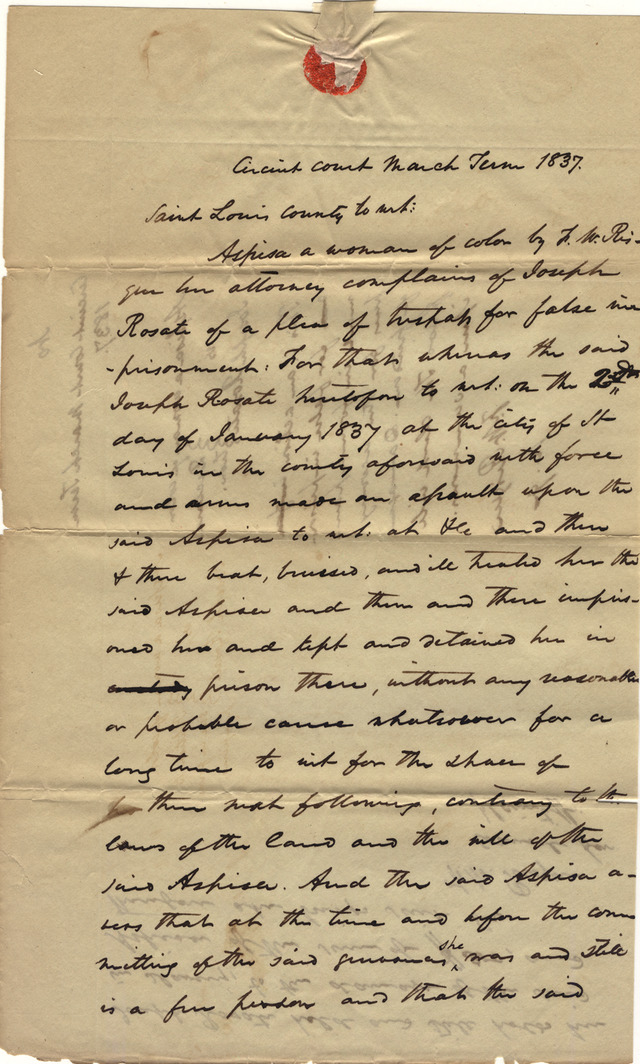 Circuit court March Term 1837.
Saint Louis County to wit:
Aspisa a woman of color by F. W. Ris-
que her attorney complains of Joseph
Rosate of a plea of trespass for false im
-prisonment: For that whereas the said
Joseph Rosate heretofore to wit: on the
day of January 1837 at the city of St
Louis in the county aforesaid with force
and arms made an assault upon the
said Aspisa to wit: at &c and then
& there beat, bruised, and ill treated her the
said Aspisa and then and there impris-
oned her and kept and detained her in
prison there, without any reasonable
or probable cause whatsoever for a
long time to wit for the space of
then next following, contrary to the
laws of the land and the will of the
said Aspisa. And the said Aspisa a-
vers that at the time and before the com
mitting of the said grievances she was and still
is a free person and that the said